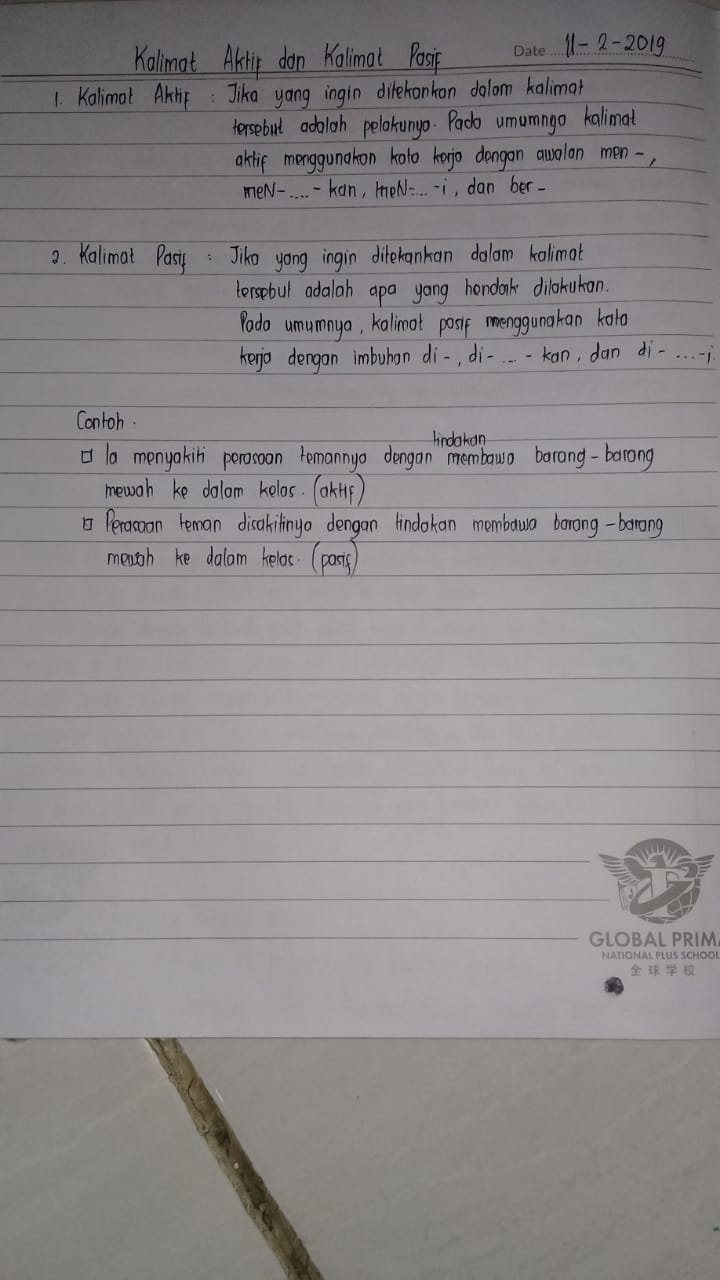 Kalimat Aktif dan Kalimat Pasif
Date 11-2-2019
1. Kalimat Aktif : Jika yang ingin ditekankan dalam kalimat
tersebut adalah pelakunya. Pada umumnya kalimat
aktif menggunakan kata kerja dengan awalan men-,
meN-....-kan, meN-...-i, dan ber-
2. Kalimat Pasif : Jika yang ingin ditekankan dalam kalimat
tersebut adalah apa yang hendak dilakukan.
Pada umumnya, kalimat pasif menggunakan kata
kerja dengan imbuhan di-, di-...-kan, dan di-...-i.
Contoh :
tindakan
□ Ia menyakiti perasaan temannya dengan membawa barang-barang
mewah ke dalam kelas. (aktif)
□ Perasaan teman disakitinya dengan tindakan membawa barang-barang
mewah ke dalam kelas. (pasif)
GLOBAL PRIMA
NATIONAL PLUS SCHOOL
全球学校